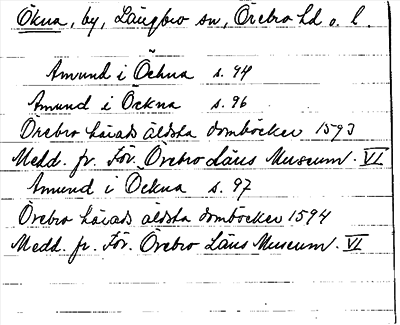 Ökna, by, Längbro sn, Örebro hd o. l.
Amund i Öckna s. 94
Amund i Öckna s. 96
Örebro härads äldsta domböcker 1593
Medd. fr. För. Örebro Läns Museum. VI
Amund i Öckna s. 97
Örebro härads äldsta domböcker 1594
Medd. fr. För. Örebro Läns Museum. VI